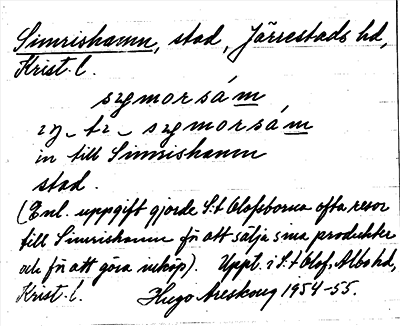 Simrishamn, stad, Järrestads hd,
Krist. l.
szmorsám
ɪɳ_tɪ_szmorsám
in till Simrishamn
stad.
(Enl. uppgift gjorde S:t Olofsborna ofta resor
till Simrishamn för att sälja sina produkter
och för att göra inköp). Uppt. i S:t Olof, Albo hd,
Krist. l. Hugo Areskoug 1954-55.